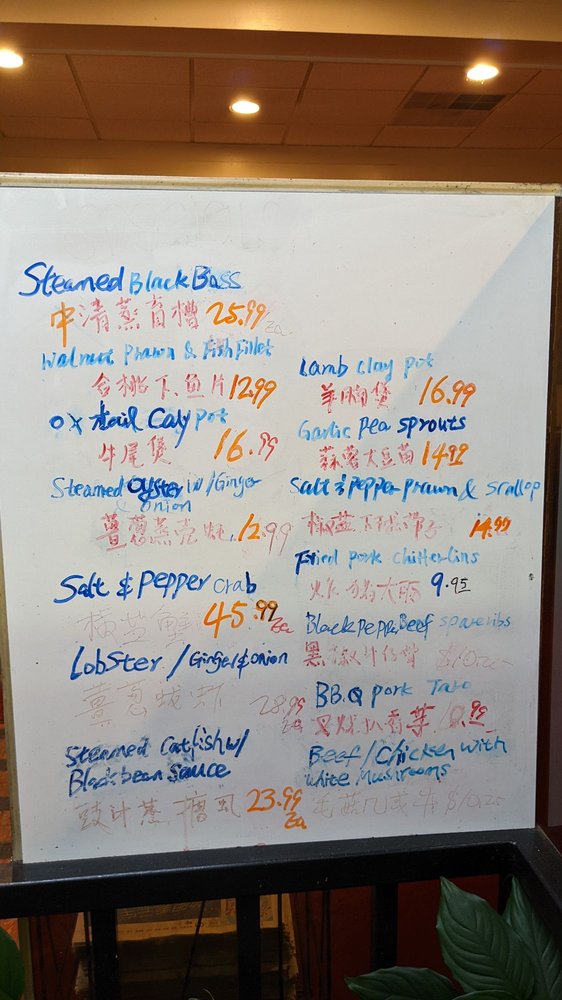 Steamed Black Bass
中清蒸盲槽 25.99 Ea
Walnut Prawn & Fish fillet
合桃下.魚片 12.99
ox tail Caly pot
牛尾煲 16.99
Steamed Oyster w/Ginger
& onion
薑蔥蒸壳蚝. 12.99
Salt & pepper crab
椒盐蟹 45.99 Ea
Lobster / Ginger & onion
薑蔥龙虾 28.99 Ea
Steamed Catfish w/
Black bean sauce
豉汁蒸 23.99 Ea
Lamb clay pot
羊腩煲 16.99
Garlic pea sprouts
蒜蓉大豆苗 14.99
Salt & pepper prawn & scallop
椒盐下球带子 14.99
Fried pork chitterlins
炸猪大肠 9.95
Black pepper Beef spareribs
黑椒汁牛仔骨
BB.Q pork Taro
叉烧扒香芋 .99
Beef / Chicken with
white mushrooms